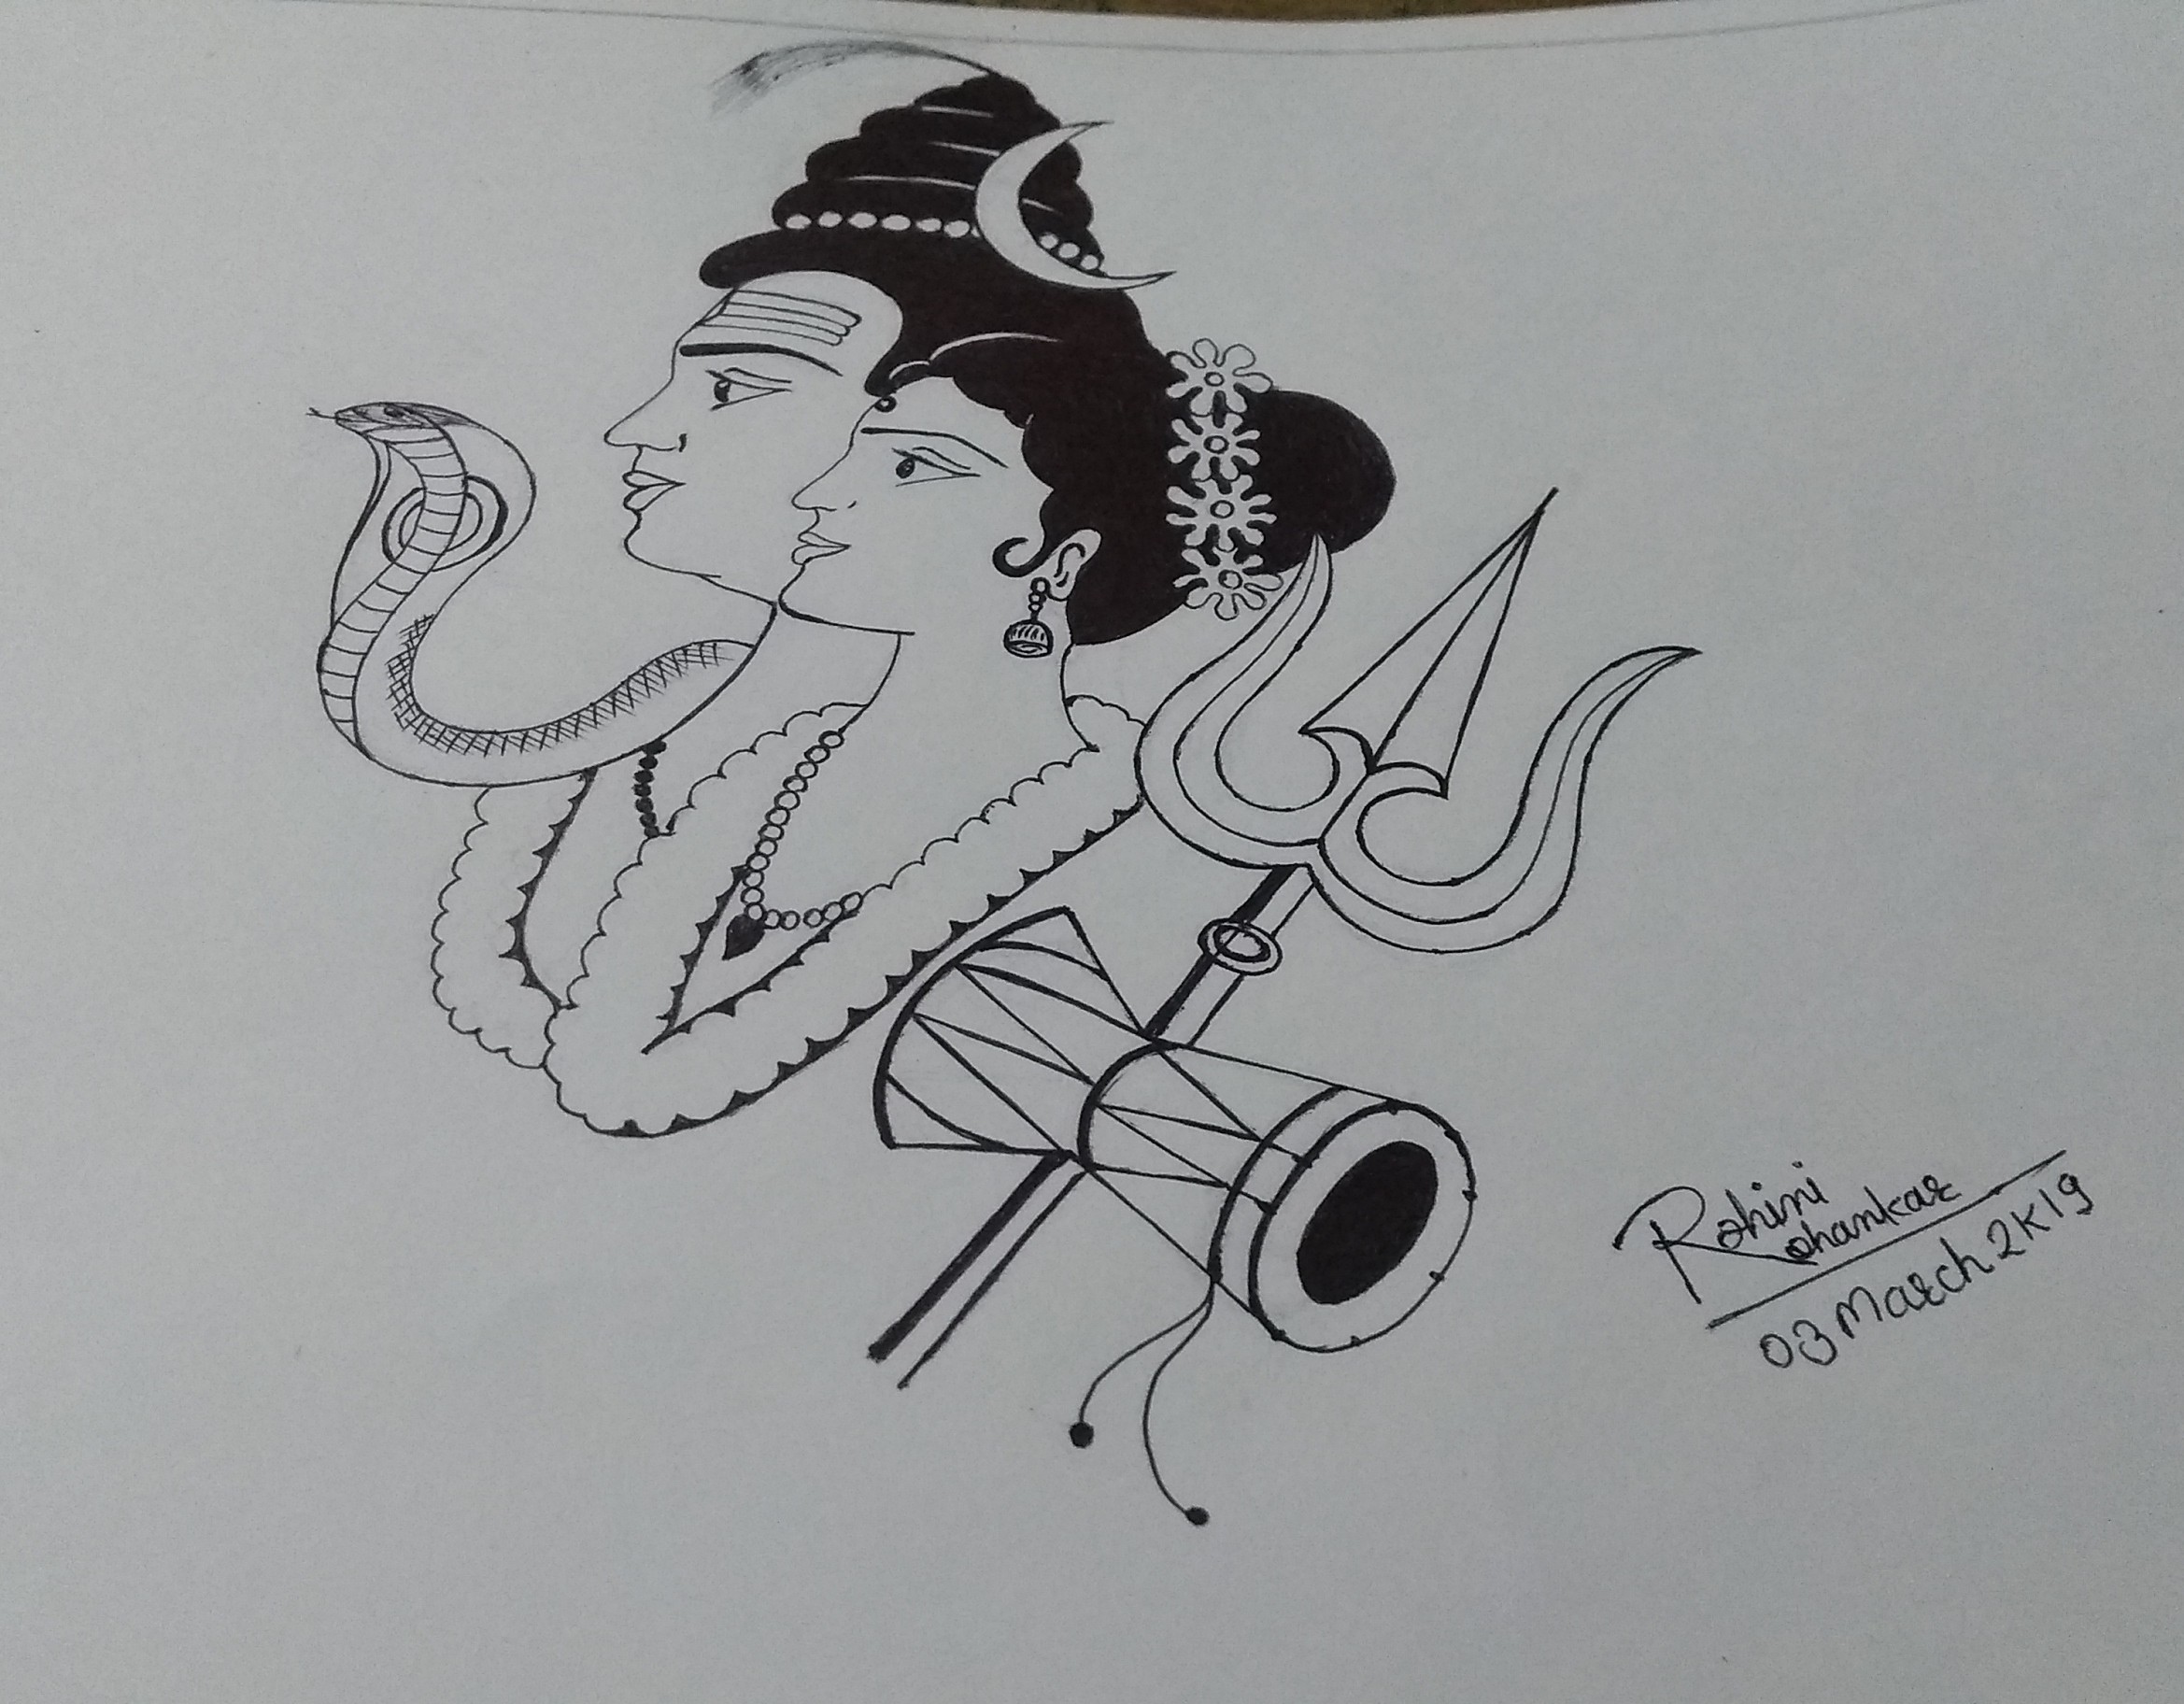 Rohini
Ohankar
03 March 2K19